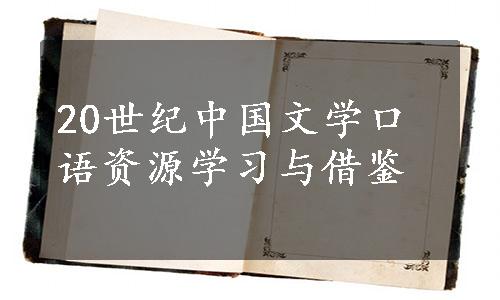 20世纪中国文学口
语资源学习与借鉴